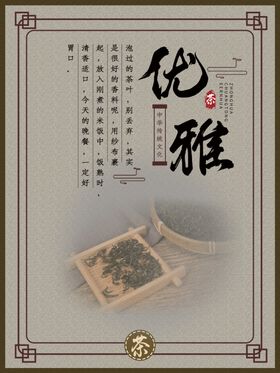 优雅
茶
ZHONGHUA
CHUANTONG
WENHUA
中华传统文化
泡过的茶叶，别丢弃，其实
是很好的香料呢，用纱布裹
起，放入刚煮的米饭中，饭熟时，
清香适口，今天的晚餐，一定好
胃口．
茶